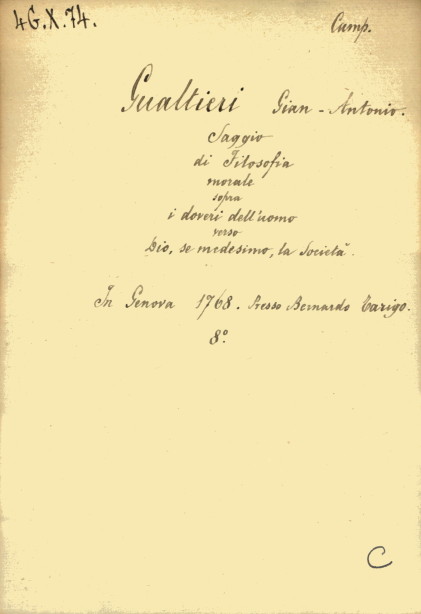 4G.X.74.
Camp.
Gualtieri Gian-Antonio.
Saggio
di Filosofia
morale
sopra
i doveri dell'uomo
verso
Dio, se medesimo, la Società.
In Genova 1768. Presso Bernardo Tarigo.
8º.
C